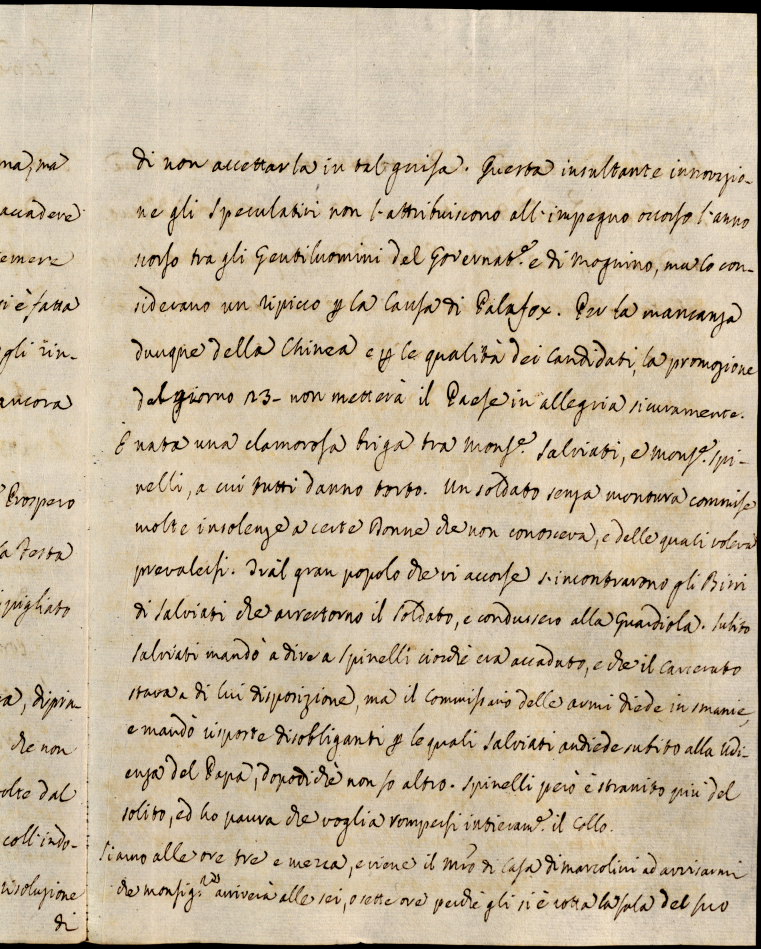 na, ma
accadere
temere
si è fatta
gli rin-
ancora
Prospero
la Testa
ipigliato
ra, dipin-
che non
volte dal
coll'indo-
risoluzione
di
di non accettarla in tal guisa. Questa insultante innovazio-
ne gli Speculativi non l'attribuiscono all'impegno occorso l'anno
scorso tra gli Gentiluomini del Governat.e e di Mognino, ma lo con-
siderano un ripicco p la Causa di Palafox. Per la mancanza
dunque della Chinea e p le qualità dei Candidati, la promozione
del giorno 23- non metterà il Paese in allegria sicuramente.
È nata una clamorosa briga tra Mons.e Salviati, e Mons.e Spi-
nelli, a cui tutti danno torto. Un soldato senza montura commise
molte insolenze a certe Donne che non conosceva, e delle quali voleva
prevalersi. Tra il gran popolo che vi accorse s'incontrarono gli Birri
di Salviati che arrestorno il Soldato, e condussero alla Guardiola. Subito
Salviati mandò a dire a Spinelli ciocchè era accaduto, e che il carcerato
stava a di lui disposizione, ma il Commissario delle armi diede in smanie,
e mandò risposte disobliganti p le quali Salviati andiede subito alla Udi-
enza del Papa, dopodichè non so altro. Spinelli però è stranito più del
solito, ed ho paura che voglia rompersi intieram.e il Collo.
Siamo alle ore tre e mezza, e viene il Mro di Casa di Marcolini ad avvisarmi
che Monsig.re arriverà alle sei, o sette ore perchè gli si è rotta la sala del suo